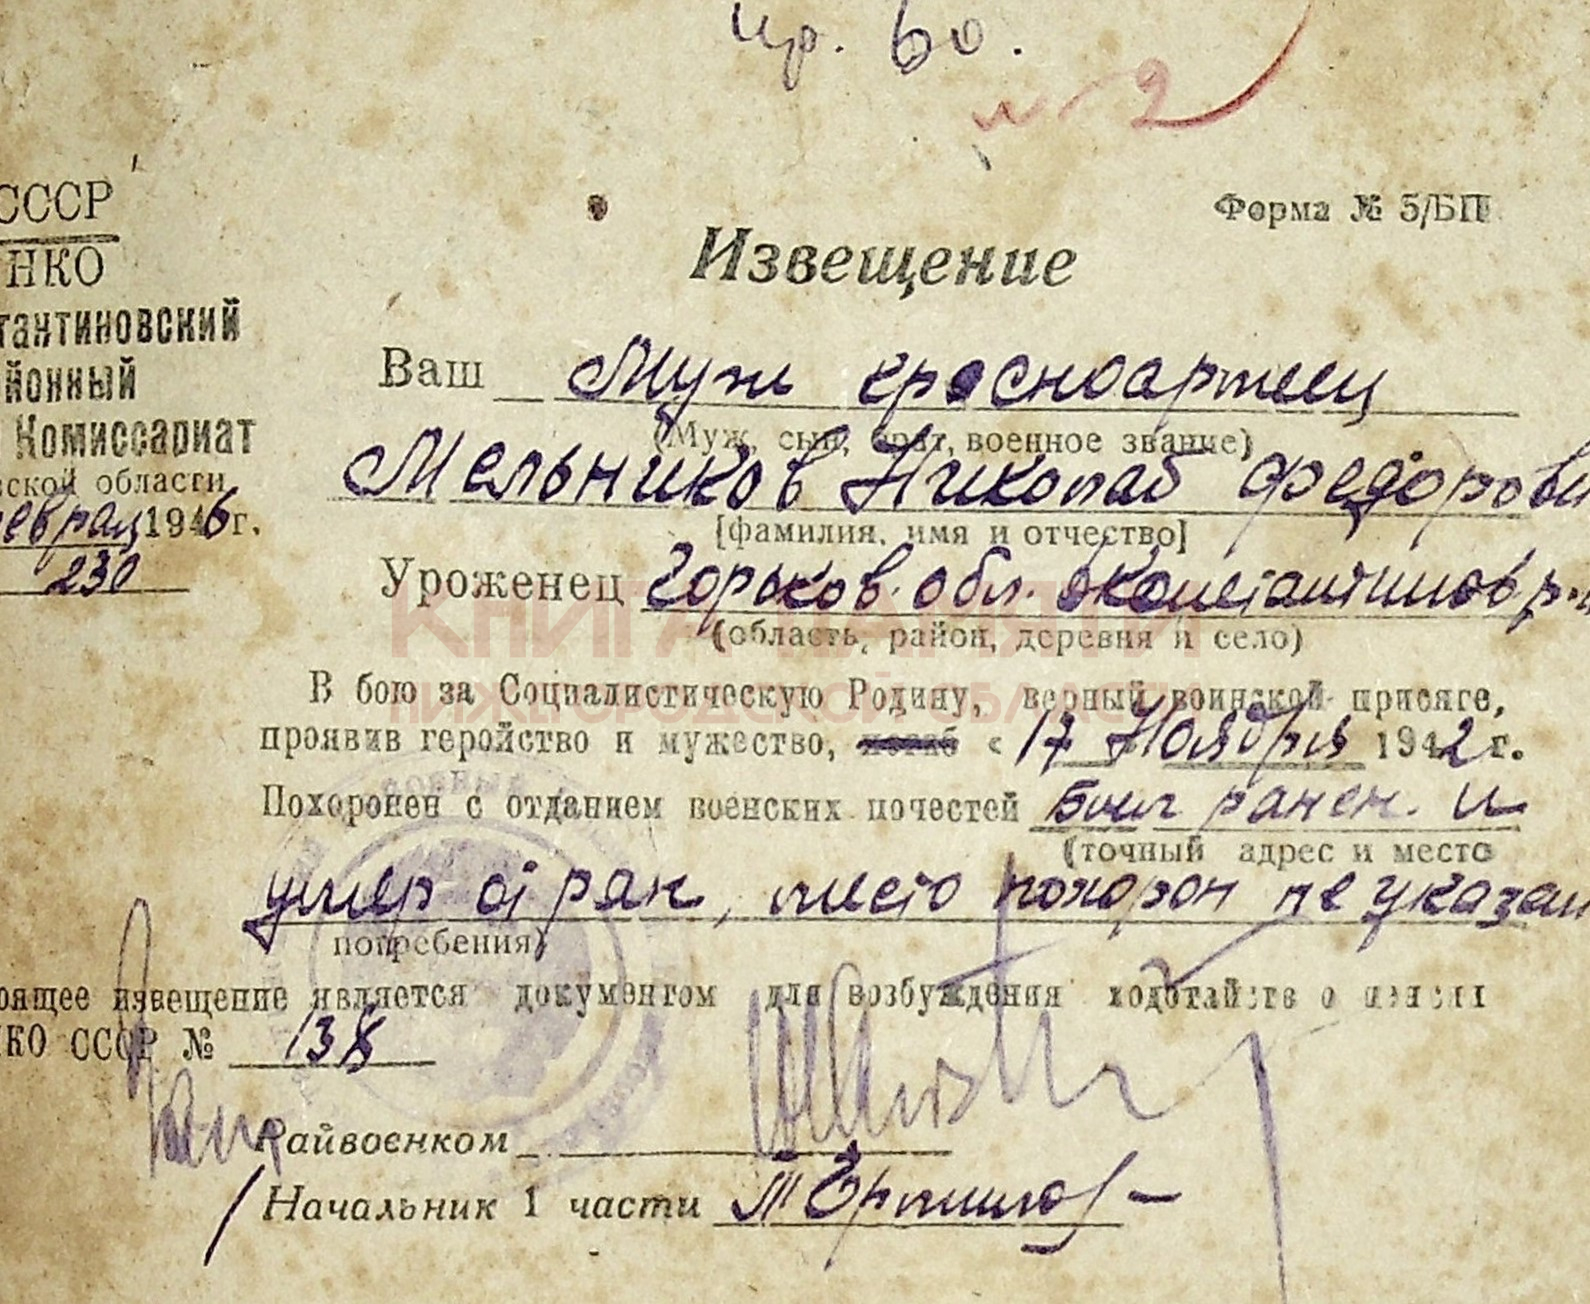 пр. 60.
№ 2
СССР
НКО
тантиновский
йонный
Комиссариат
вской области
еврал 1946 г.
230
Форма № 5/БП
Извещение
Ваш Муж красноармеец
(Муж, сын, брат, военное звание)
Мельников Николай Федорови
[фамилия, имя и отчество]
Уроженец Горьков. обл. Константинов. р-н
(область, район, деревня и село)
КНИГА ПАМЯТИ
НИЖЕГОРОДСКОЙ ОБЛАСТИ
В бою за Социалистическую Родину, верный воинской присяге,
проявив геройство и мужество, погиб « 17 Ноября 1942 г.
Похоронен с отданием военских почестей Был ранен. и
(точный адрес и место
умер от ран, место похорон не указан
погребения)
оящее извещение является документом для возбуждения ходотайств о пенсии
КО СССР № 138
Райвоенком
Начальник 1 части